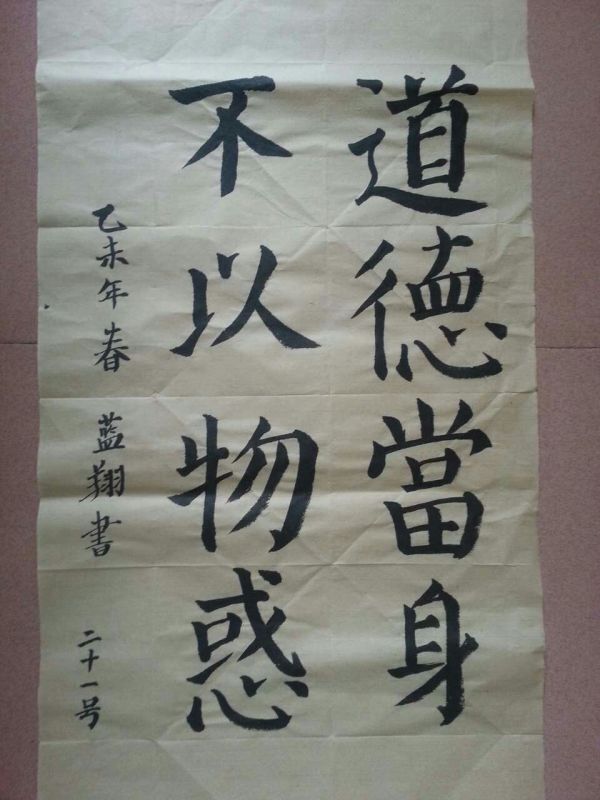 道德當身
不以物惑
乙未年春 藍翔書 二十一号